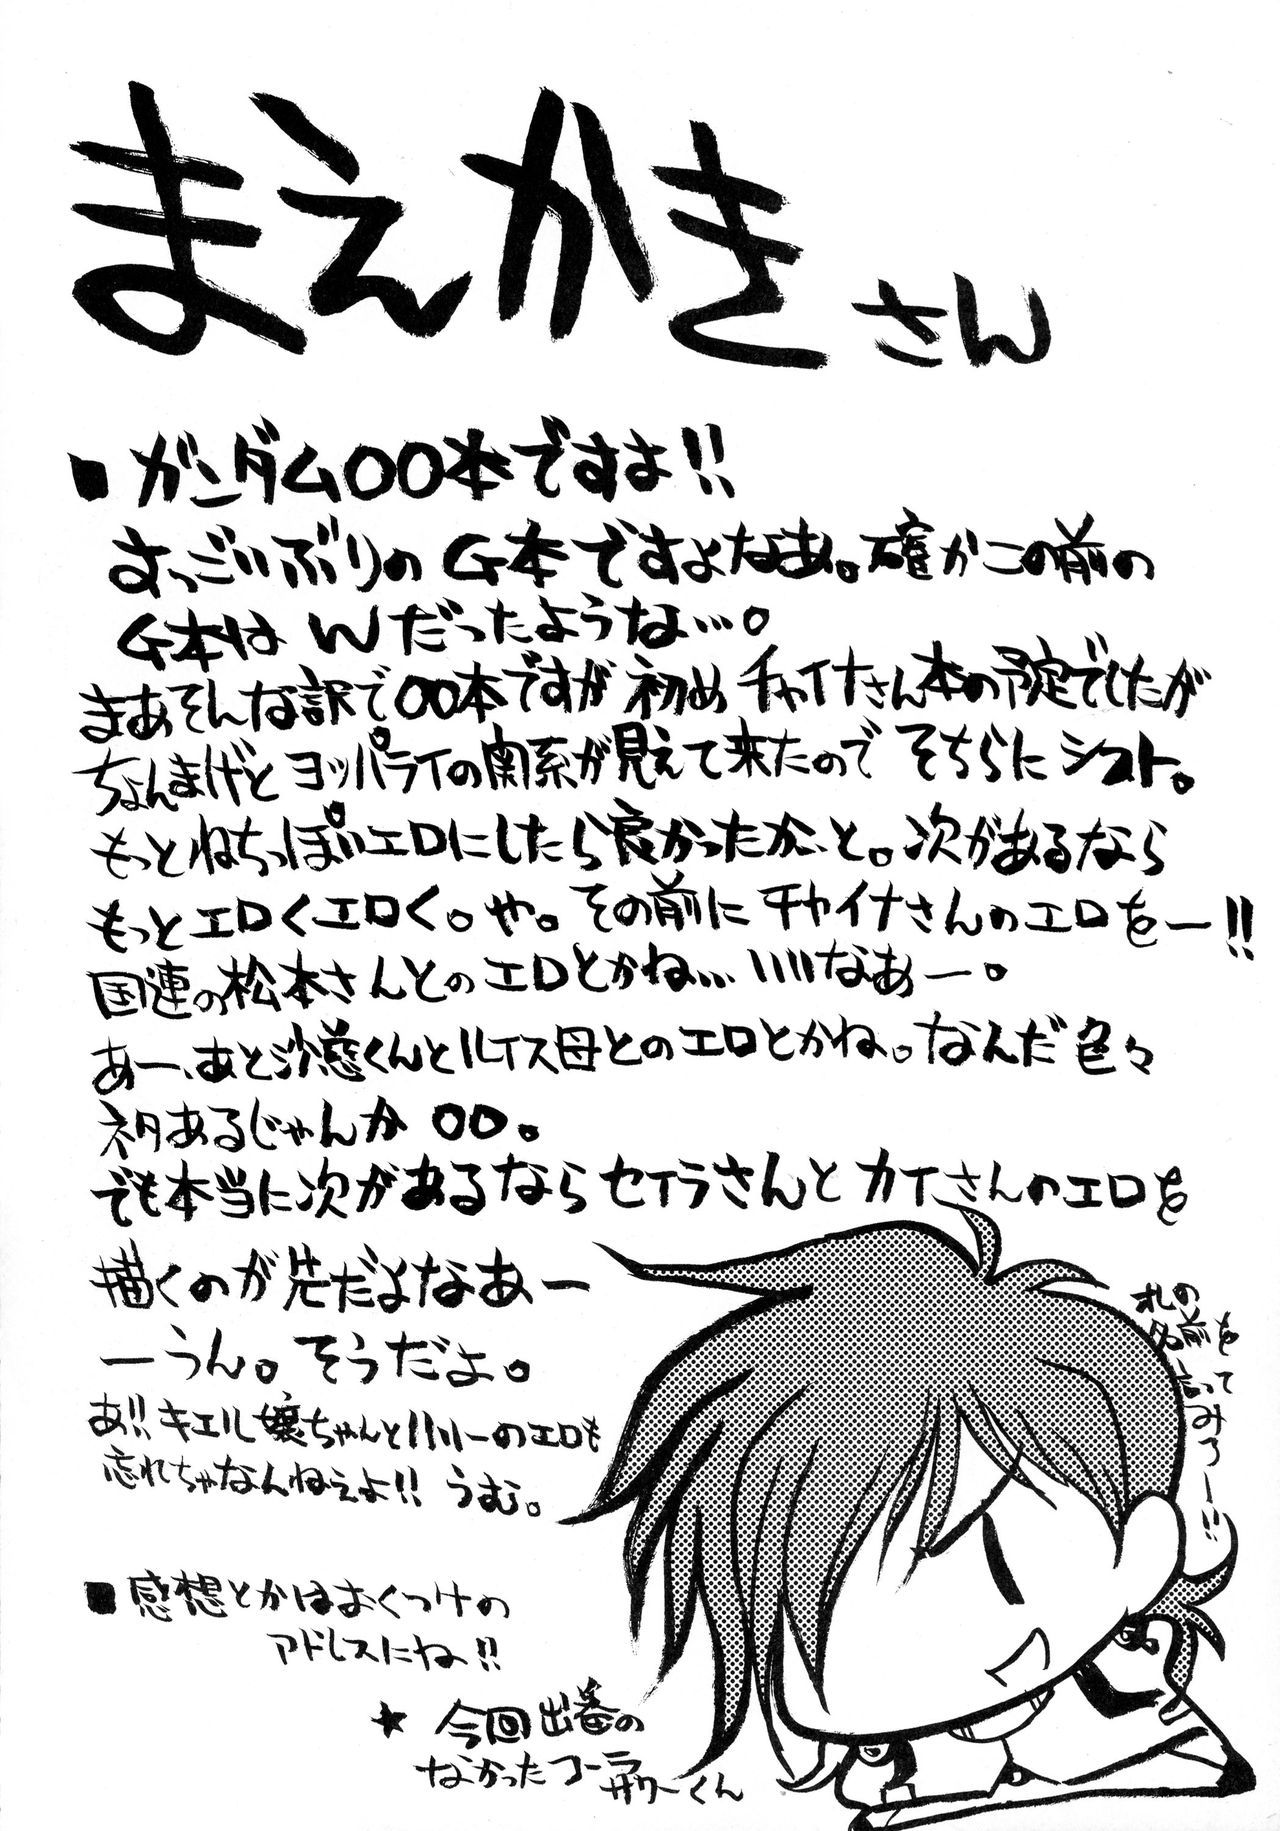 まえかきさん
■ガンダム〇〇本ですよ!!
すっごいぶりのG本ですよなあ。確かこの前の
G本はWだったような…。
まあそんな訳で〇〇本ですが初めチャイナさん本の予定でしたが
ちょんまげとヨッパライの関系が見えて来たのでそちらにシフト。
もっとねちっぽいエロにしたら良かったか、と。次があるなら
もっとエロくエロく。や。その前にチャイナさんのエロをー!!
国連の松本さんとのエロとかね…いいなあー。
あー、あと沙慈くんとルイス母とのエロとかね。なんだ色々
ネタあるじゃんか〇〇。
でも本当に次があるならセイラさんとカイさんのエロを
描くのが先だよなあー
ーうん。そうだよ。
あ!!キエル嬢ちゃんとハリーのエロも
忘れちゃなんねえよ!!うむ。
■感想とかはおくつけの
アドレスにね!!
★今回出番の
なかったコーラサワーくん
オレの
名前を
言って
みろー!!